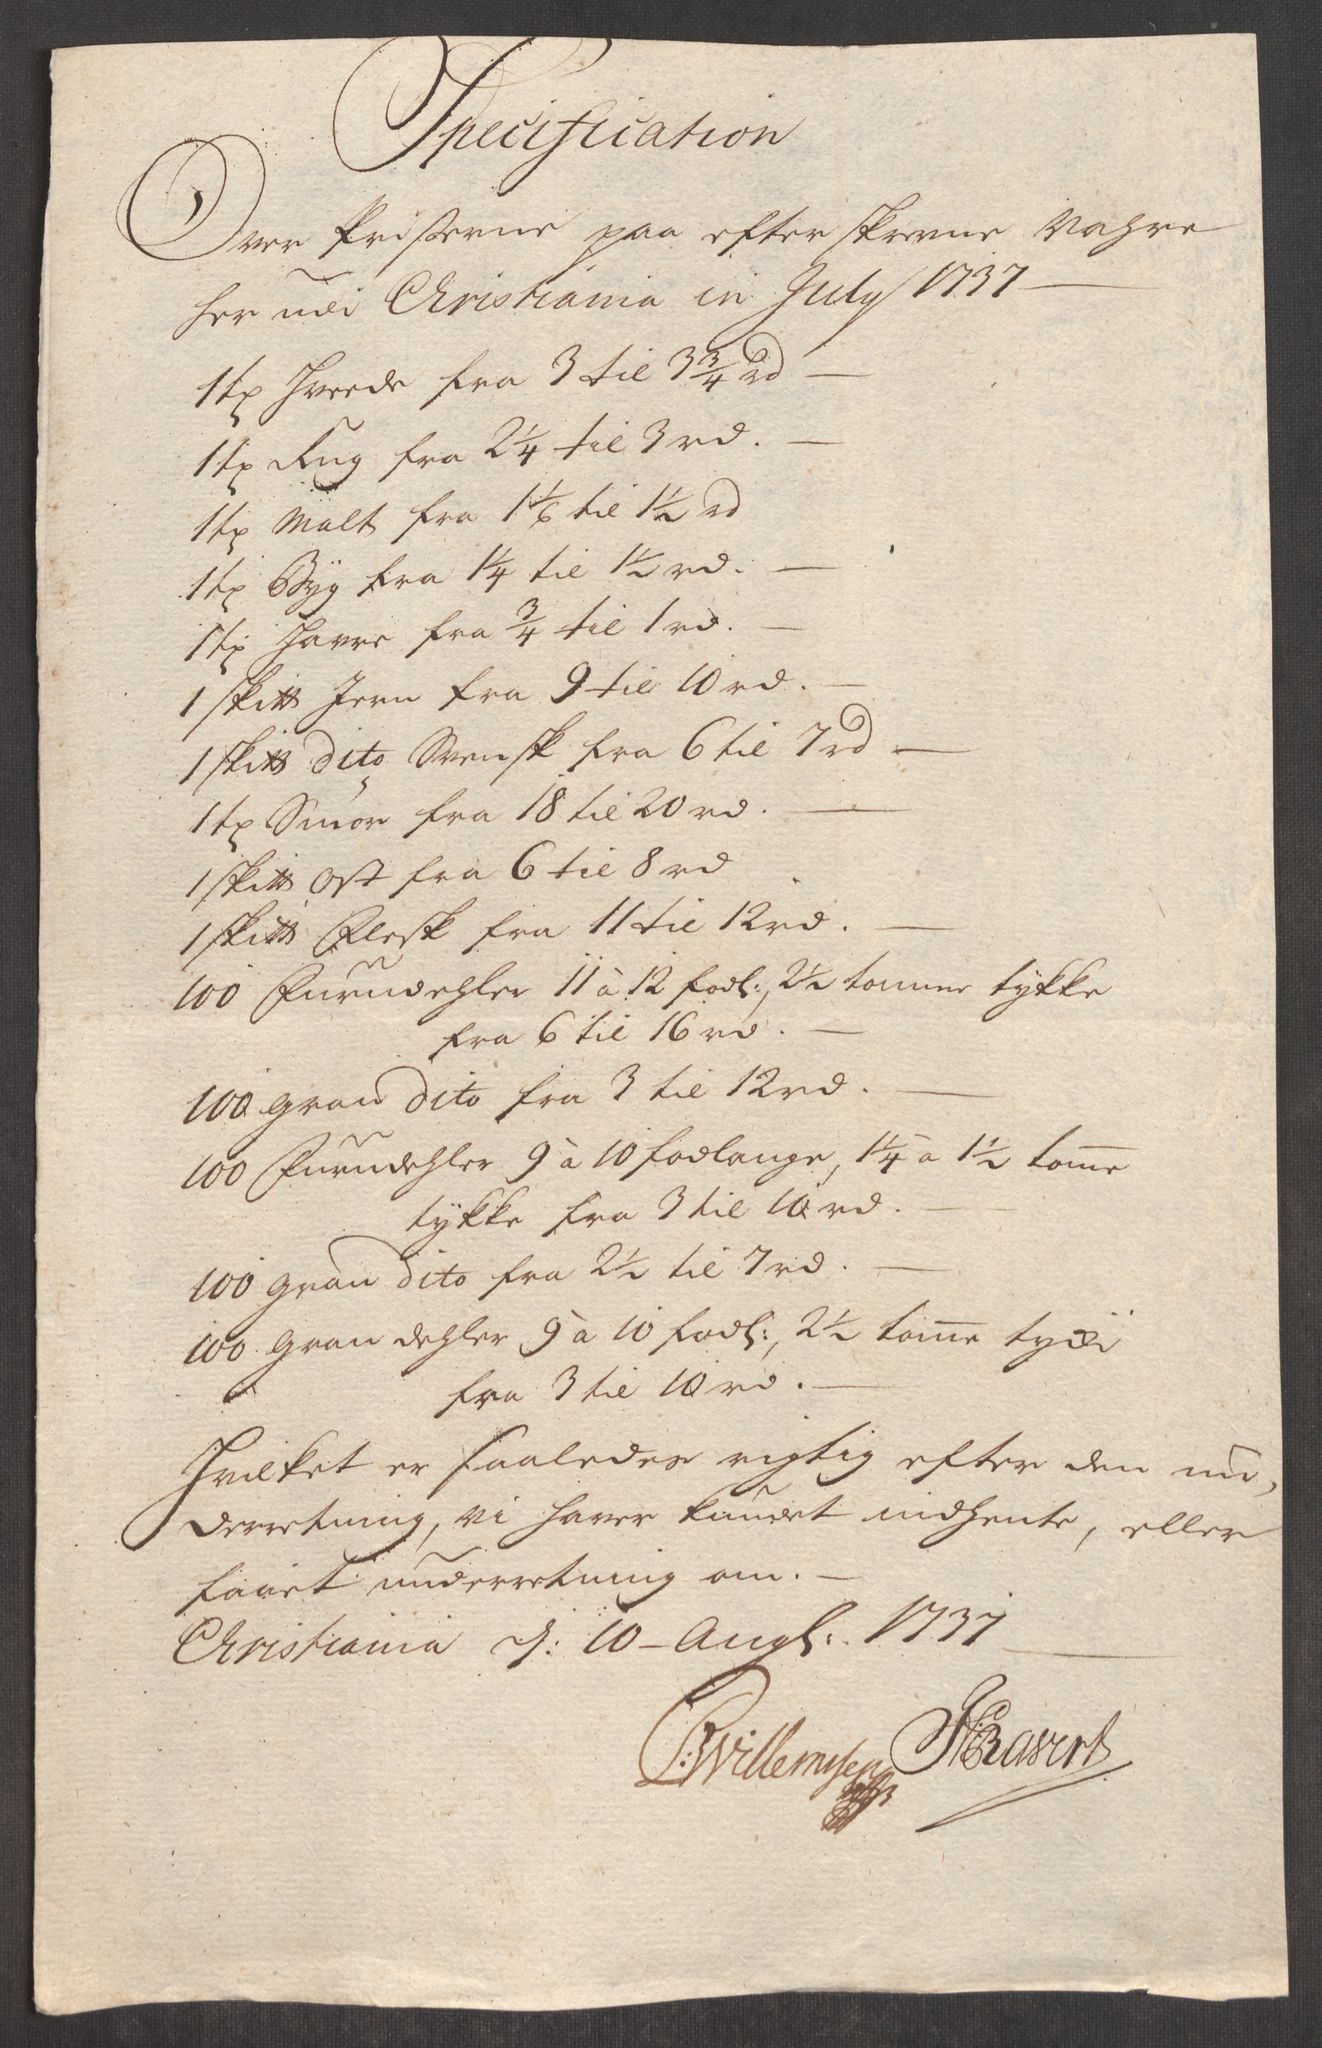 Specification
Over Prisserne paa efterskrevne Vahre
her udi Christiania in July 1737
1 tø Hvede fra 3 til 3¾ rd
1 tø Rug fra 2¼ til 3 rd.
1 tø Malt fra 1⅙ til 1½ rd
1 tø Byg fra 1¼ til 1½ rd.
1 tø Havre fra ¾ til 1 rd.
1 skitt Jern fra 9 til 10 rd.
1 skitt dito Svensk fra 6 til 7 rd
1 tø Smör fra 18 til 20 rd.
1 skitt Ost fra 6 til 8 rd
1 skitt Flesk fra 11 til 12 rd.
100 Furudehler 11 à 12 fodl:, 2½ tomme tykke
fra 6 til 16 rd.
100 gran dito fra 3 til 12 rd.
100 Furudehler 9 à 10 fodlange, 1¼ à 1½ tomme
tykke fra 3 til 10 rd.
100 gran dito fra 2½ til 7 rd.
100 gran dehler 9 à 10 fodl:, 2½ tomme
fra 3 til 10 rd.
Hvilket er saaledes rigtig efter den un,
derretning, vi haver kundet indhente, eller
faaet underretning om.
Christiania d: 10 Augl: 1737
Willemsen Ravert